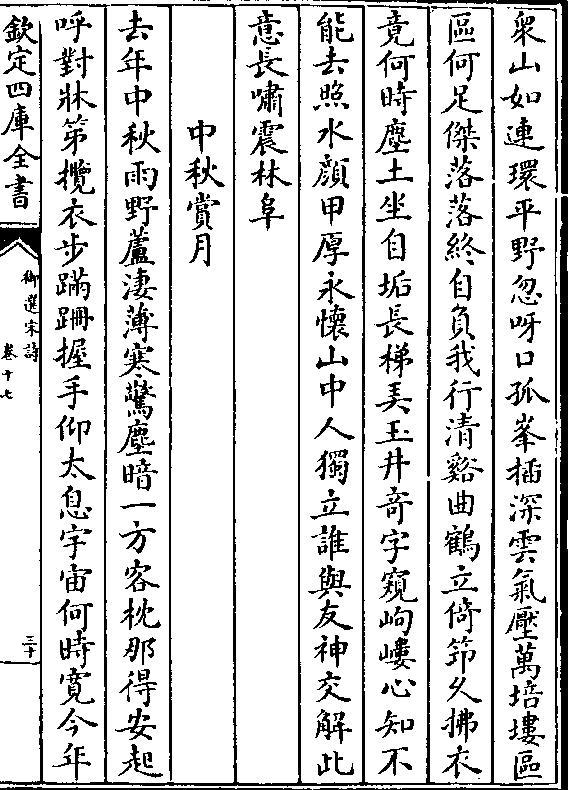 衆山如連環平野忽呀口孤峯插深雲氣壓萬培塿區
區何足傑落落終自負我行清谿曲鶴立倚筇久拂衣
竟何時塵土坐自垢長梯羙玉井奇字窺岣嶁心知不
能去照水顔甲厚永懷山中人獨立誰與友神交解此
意長嘯震林阜
中秋賞月
去年中秋雨野蘆淒薄寒驚塵暗一方客枕那得安起
呼對牀第攬衣步蹣跚握手仰太息宇宙何時寛今年
欽定四庫全書
御選宋詩
卷十七
三十